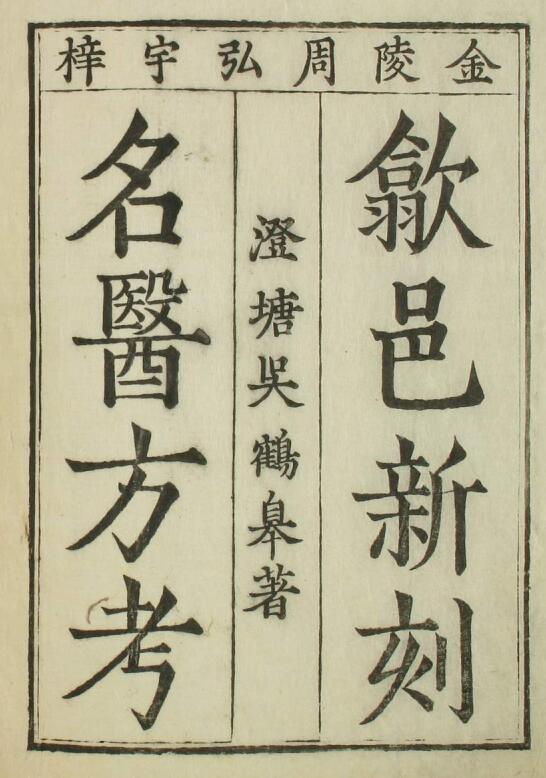 金陵周弘宇梓
歙邑新刻
澄塘吳鶴皋著
名醫方考